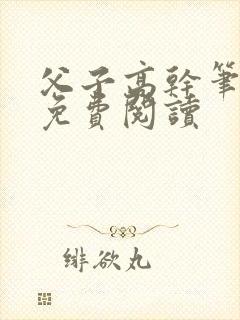 父子高幹筆
免費閱讀
緋欲丸